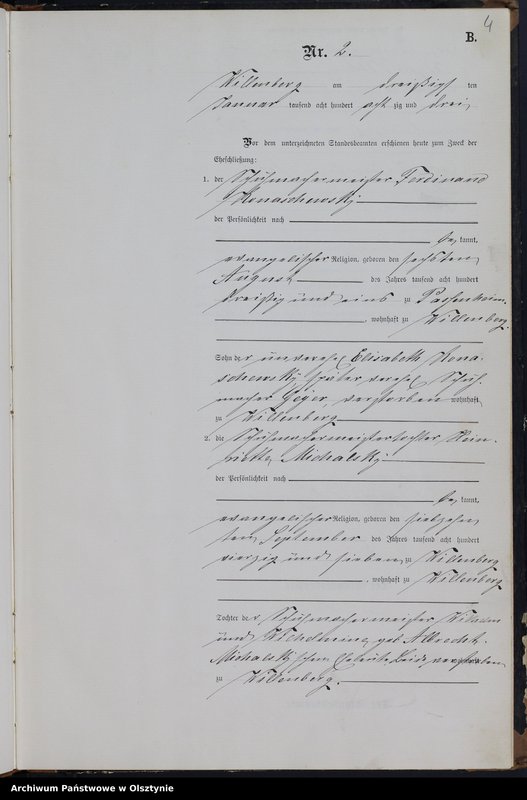 4
B.
Nr. 2.
Willenberg am dreißigsten
Januar tausend acht hundert achtzig und drei
Vor dem unterzeichneten Standesbeamten erschienen heute zum Zweck der
Eheschließung:
1. der Schuhmachermeister Ferdinand
Konaschewsky
der Persönlichkeit nach
be kannt,
evangelischer Religion, geboren den sechsten
August des Jahres tausend acht hundert
dreißig und eins zu Passenheim
, wohnhaft zu Willenberg
Sohn der unverehel Elisabeth Kona-
schewsky, später verehel Schuh-
macher Geyer, verstorben wohnhaft
zu Willenberg
2. die Schuhmachermeistertochter Hen-
riette Michalsky
der Persönlichkeit nach
be kannt,
evangelischer Religion, geboren den siebzehn
ten September des Jahres tausend acht hundert
vierzig und sieben zu Willenberg
, wohnhaft zu Willenberg
Tochter der Schuhmachermeister Wilhelm
und Wilhelmine geb. Albrecht
Michalsky'schen Eheleute, beide verstorben
zu Willenberg.
Archiwum Państwowe w Olsztynie